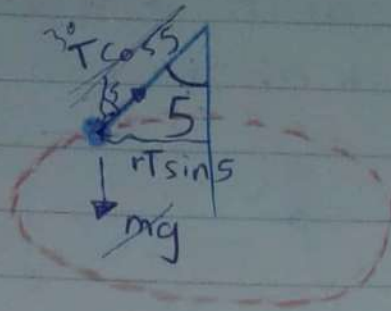 Tcos5
5
rTsin5
mg